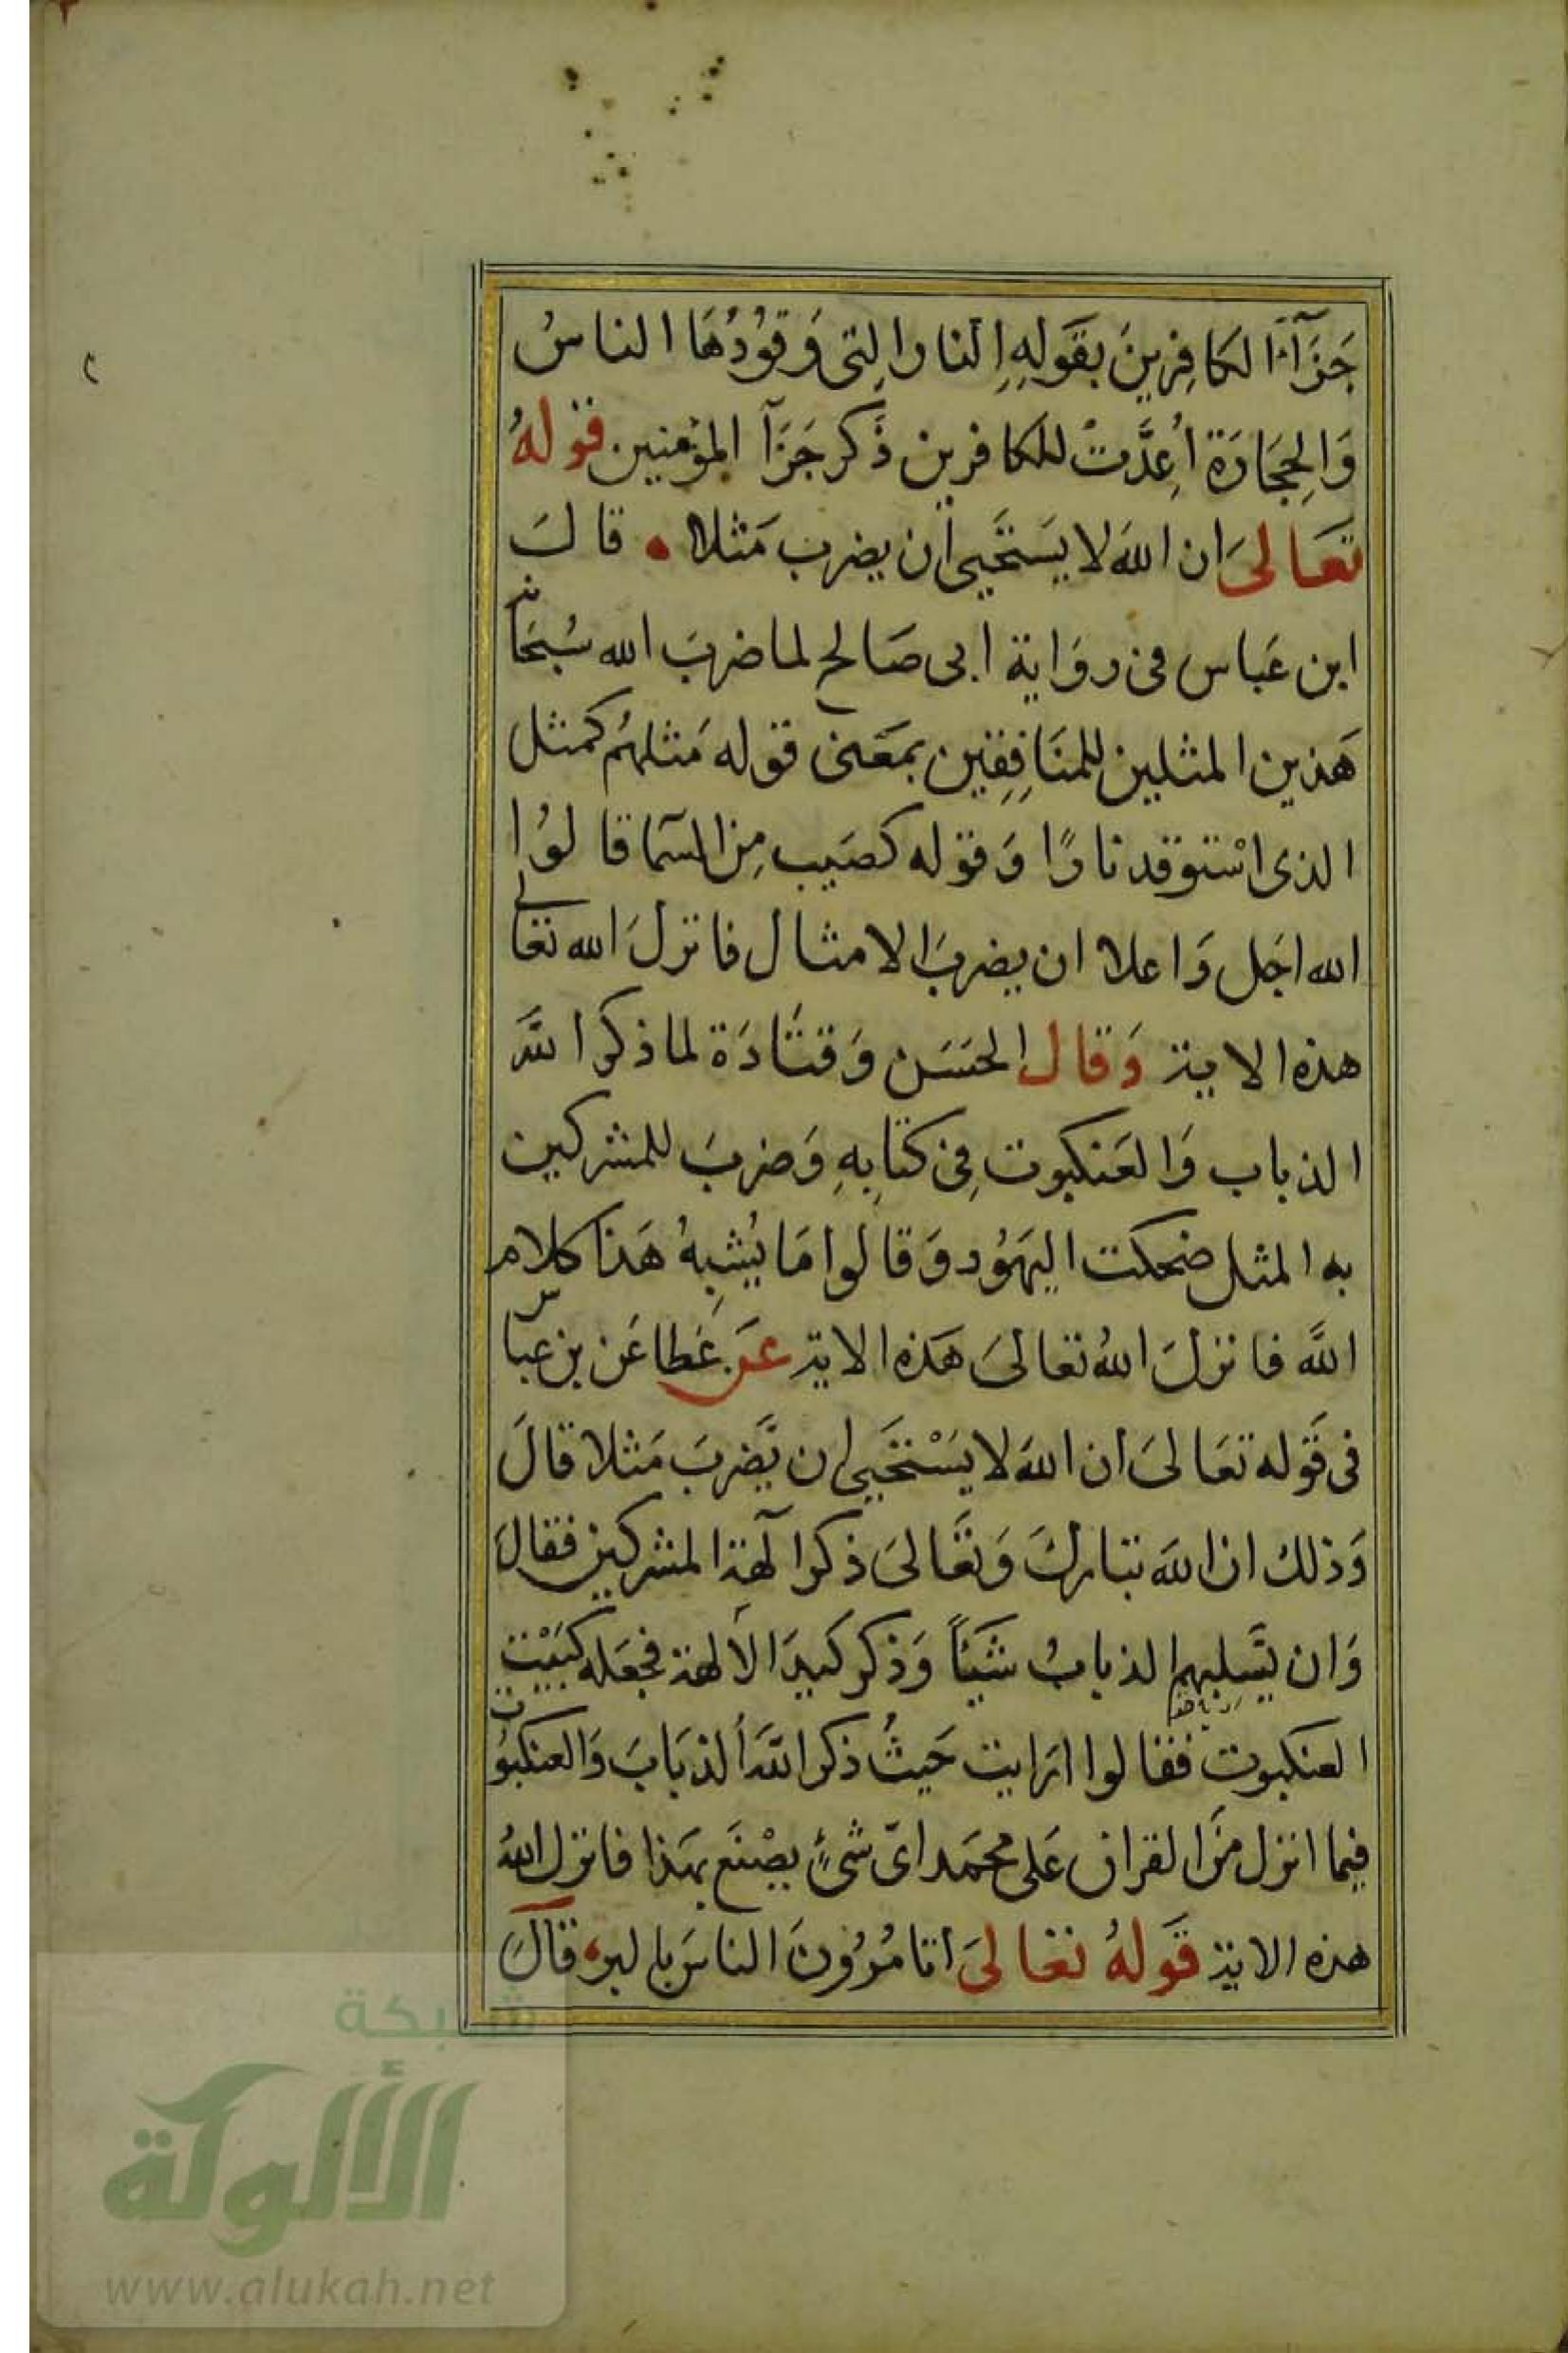 جَزَآءَ الكافِرينَ بقَولِهِ النار التى وَقوُدُهَا الناسُ
وَالحِجَارَة أُعِدَّتْ للكافرين ذَكر جَزَآ المؤمنين قوله
تعَالىَ ان اللهَ لا يَستَحيى أن يضرب مَثلا • قالَ
ابن عَباس فى روَاية ابى صَالح لما ضربَ الله سُبحَانه
هَذين المثلين للمنَافِقِين بمعَنى قوله مَثلهُم كمثل
الذى اسْتوقد نارًا وَقوله كصَيب مِن السَما قالوُا
الله اجَل وَاعلا ان يضربَ الامثال فانزلَ الله تعَالى
هذه الاية وَقال الحسَن وَقتَادَة لما ذكر اللَّه
الذباب وَالعَنكبوت فِى كتَابِهِ وَضربَ للمشركين
به المثل ضحكت اليهَوُد وَقالوا مَا يُشبِهُ هَذا كلام
اللَّه فانزلَ اللهُ تعالىَ هَذه الاية عَن عَطا عَن بن عبَاس
فى قَوله تعَالىَ ان اللهَ لا يَسْتَحَيى ان يَّضربَ مَثلا قالَ
وَذلك ان اللهَ تبَاركَ وَتعَالىَ ذكر آلهة المشركين فقالَ
وَان يَّسلِبهم الذبابُ شَيئاً وَذكر كيدَ الألهة فجعَله كبَيْت
العنكبوت فقالوا ارَايت حَيثُ ذكر اللَّهَ الذبَابَ وَالعنكبوُت
فيما انزل منَ القران عَلى محمَد اىّ شئٍ يصْنعَ بهَذا فانزل اللهُ
هذه الاية قَولهُ تعَالىَ اتامُرُونَ الناسَ بالبر، قالَ
شبكة
الألوكة
www.alukah.net